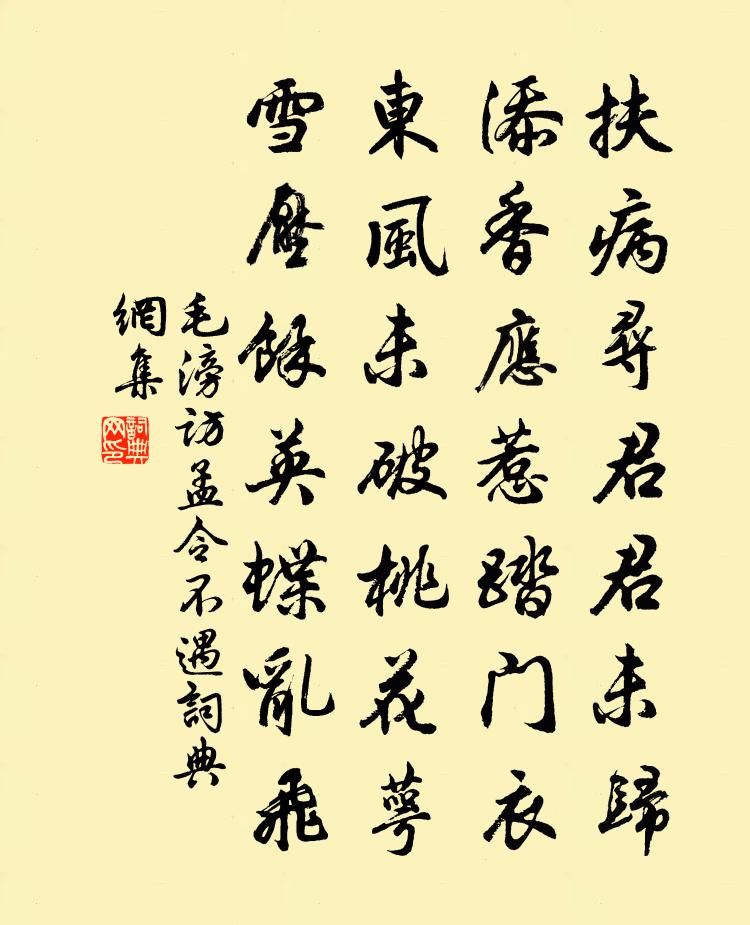 扶病尋君君未歸
添香應惹踏門衣
東風未破桃花萼
雪壓餘英蝶亂飛
毛滂訪孟令不遇詞典
網集
詞典
网印